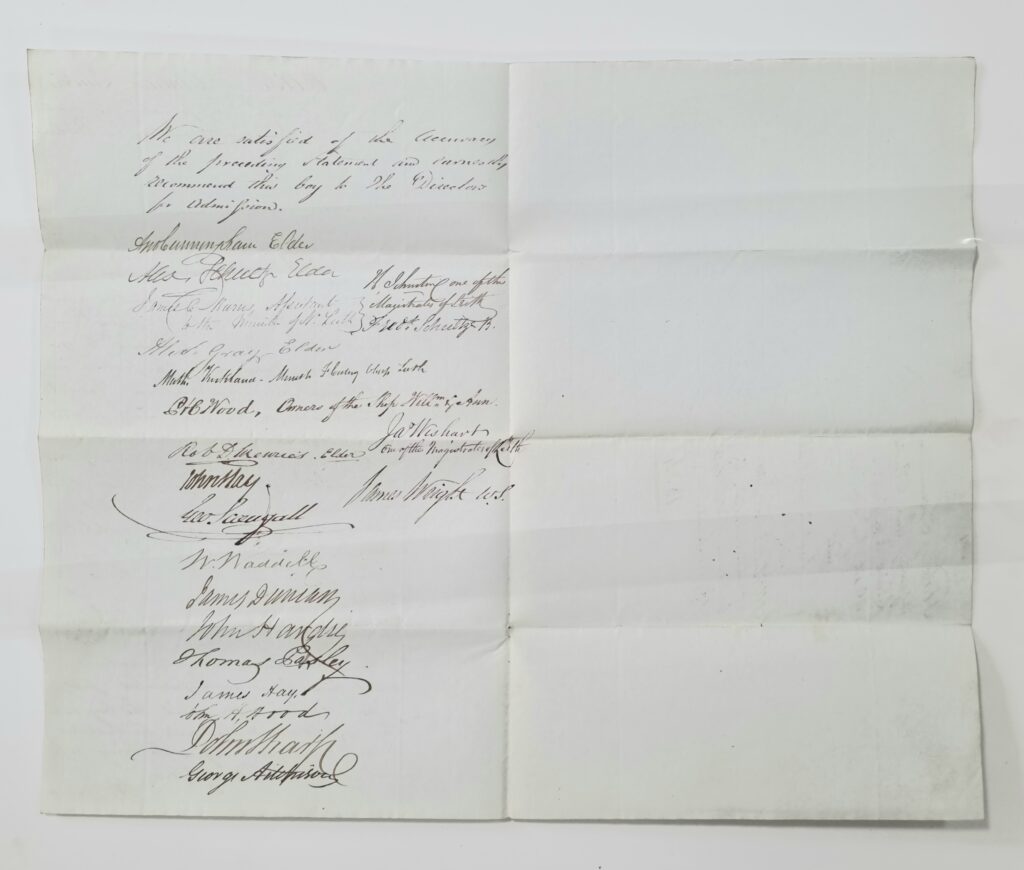 We are satisfied of the accuracy
of the preceding statement and earnestly
recommend this boy to the Directors
for admission.
And Cunningham Elder
Alex Elder
James C. Assistant
to the Minister of N. Leith
H Johnston one of the
Magistrates of Leith
Fredk Schultze Jr.
Alexr. Gray Elder
Kirkland - Minister Leith
P & C Wood, Owners of the Ship Willm & Ann.
Jas Wishart
one of the Magistrates of Leith
Robt. D. Kenrics. Elder
John Hay.
James Wright W.S.
Geo. Scougall
W. Waddell
James Duncan
John Hardie
Thomas Paisley
James Hay.
John A. Wood
John Sharp
George Aitchison